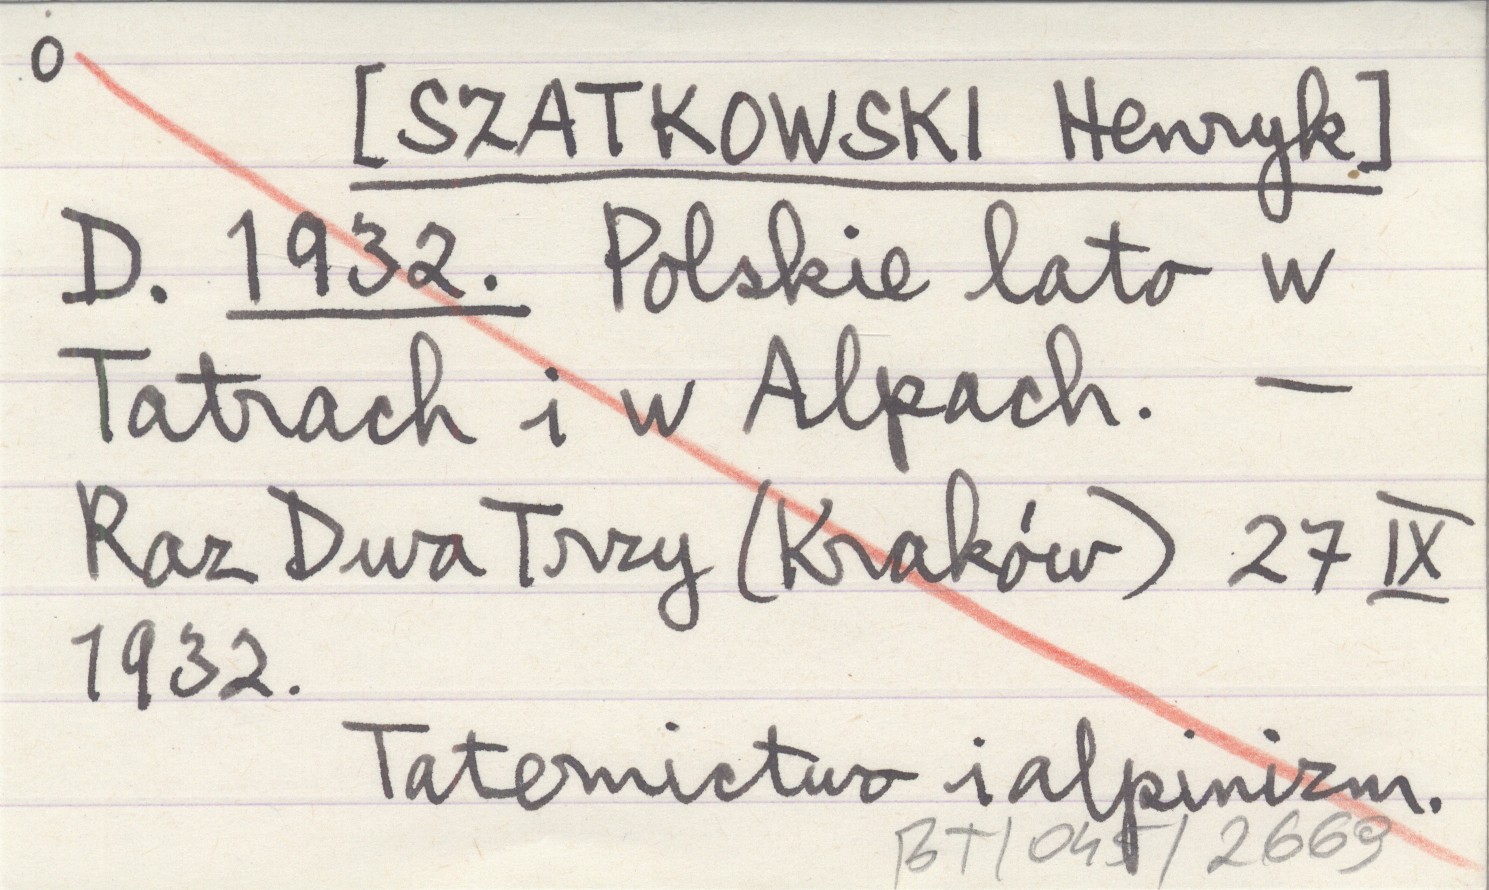 o
[SZATKOWSKI Henryk]
D. 1932. Polskie lato w
Tatrach i w Alpach. —
Raz Dwa Trzy (Kraków) 27 IX
1932.
Taternictwo i alpinizm.
BT/045/2669